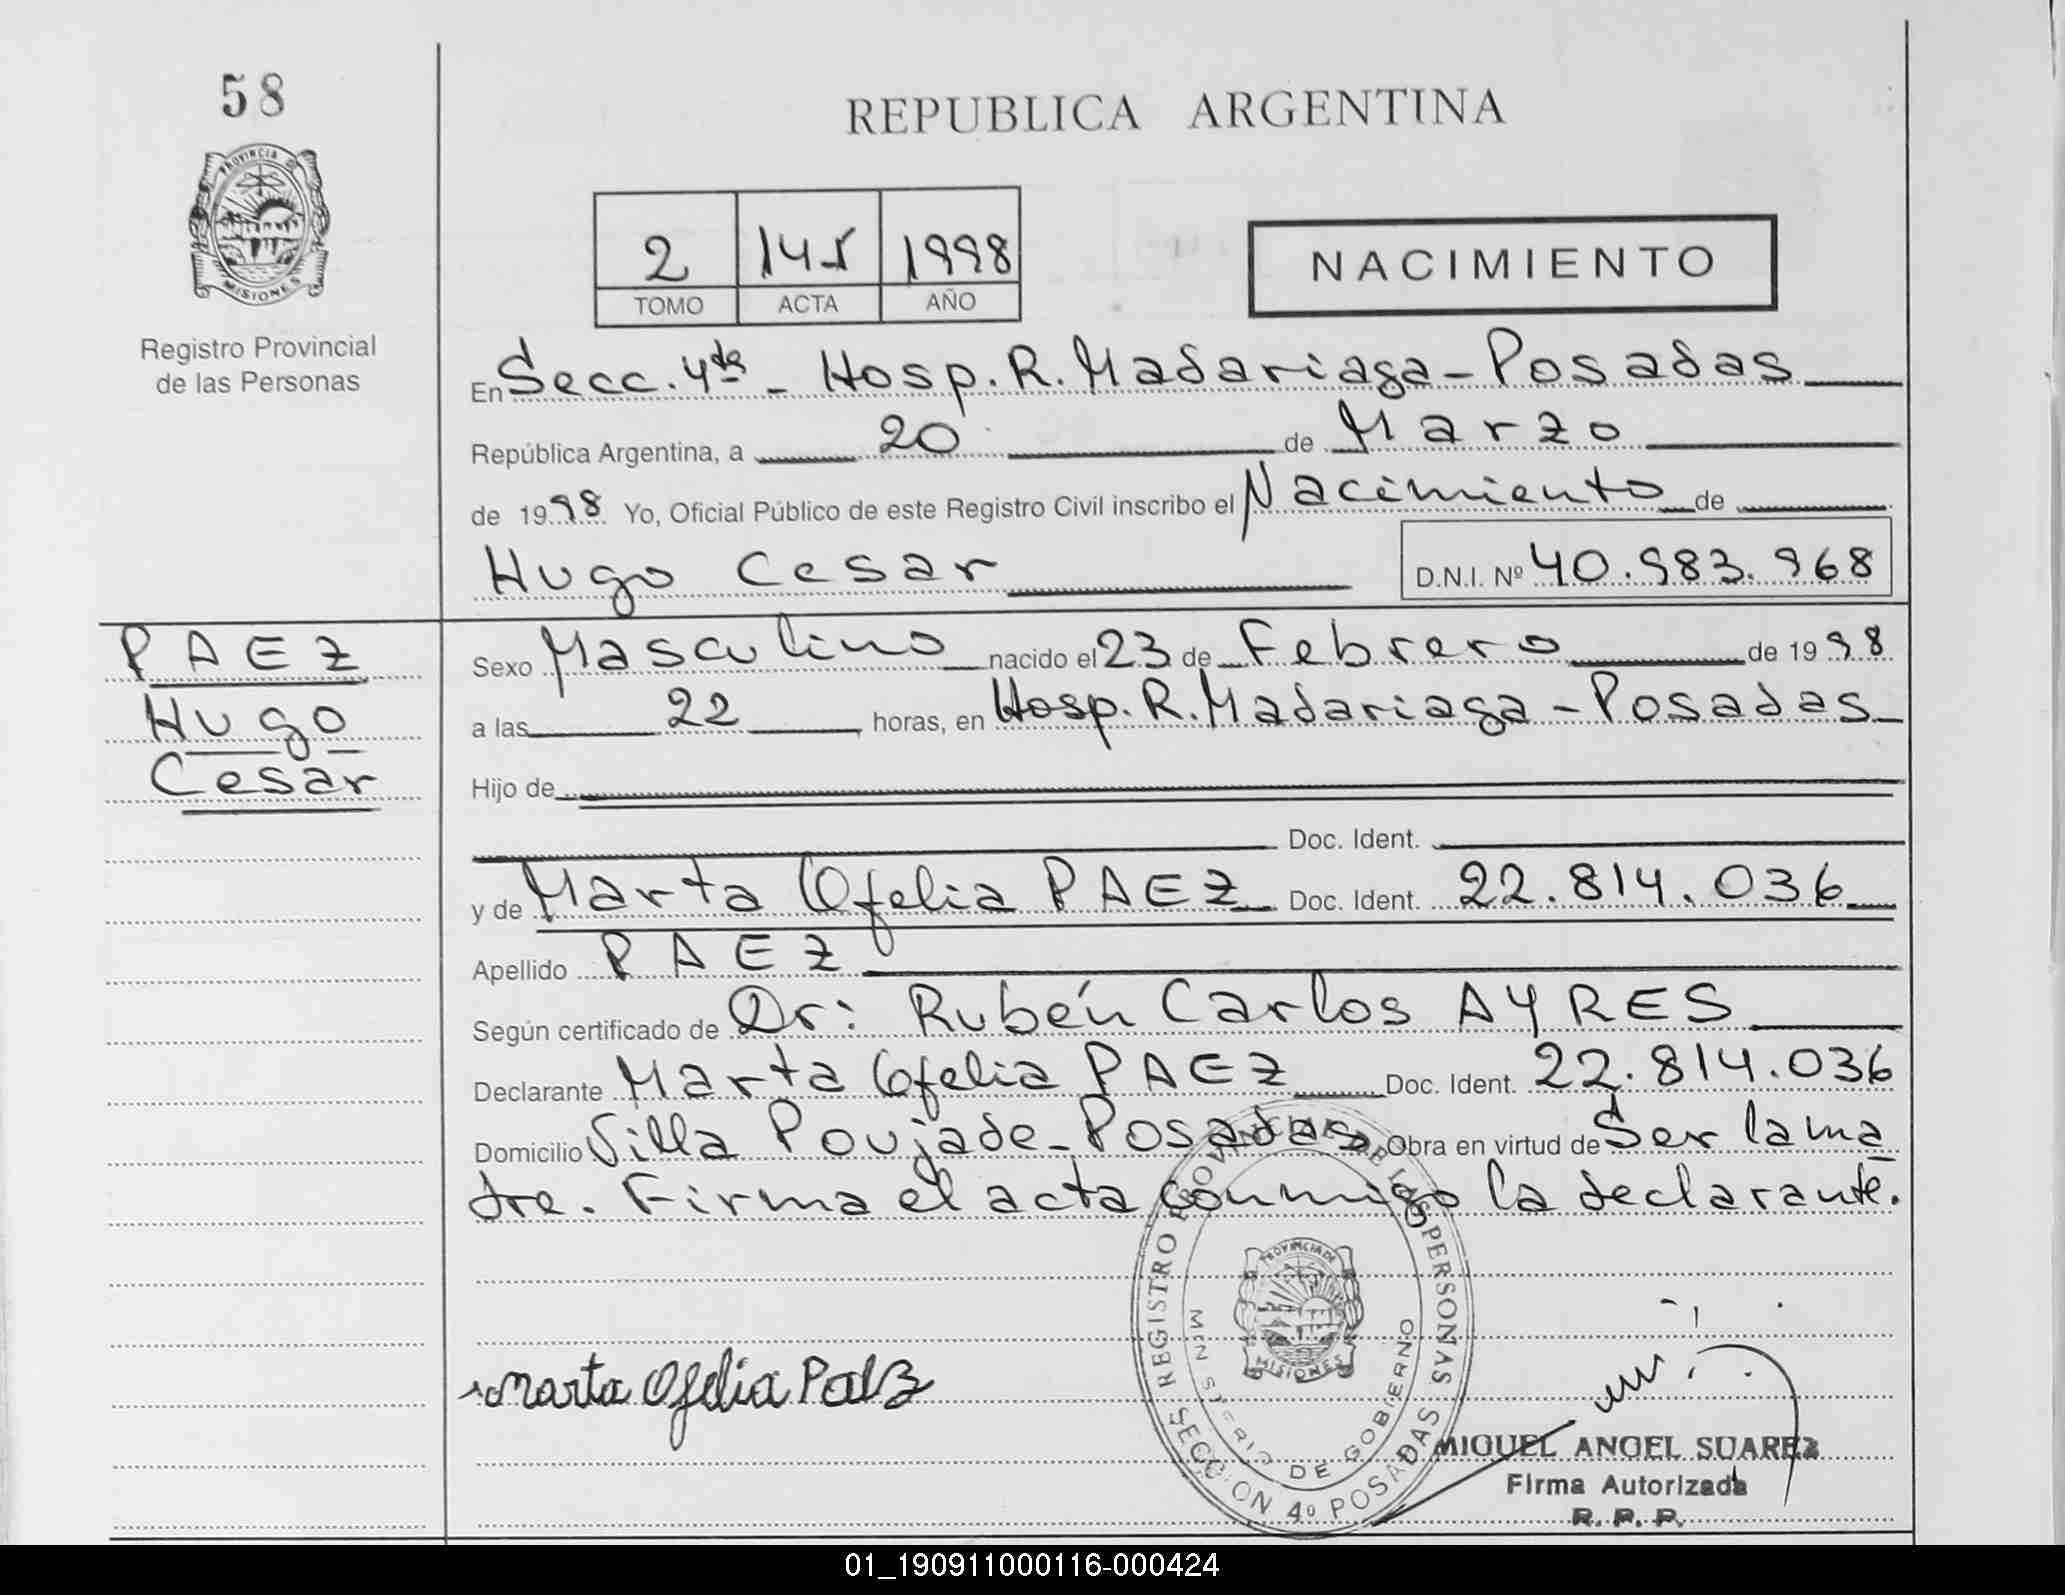 58
REPUBLICA ARGENTINA
PROVINCIA DE
MISIONES
Registro Provincial
de las Personas
2 145 1998
TOMO ACTA AÑO
NACIMIENTO
En Secc. 4ta - Hosp. R. Madariaga - Posadas
República Argentina, a 20 de Marzo
de 1998 Yo, Oficial Público de este Registro Civil inscribo el Nacimiento de
Hugo Cesar D.N.I. Nº 40.983.968
PAEZ
Hugo
Cesar
Sexo Masculino nacido el 23 de Febrero de 1998
a las 22 horas, en Hosp. R. Madariaga - Posadas
Hijo de
Doc. Ident.
y de Marta Ofelia PAEZ Doc. Ident. 22.814.036
Apellido PAEZ
Según certificado de Dr: Rubén Carlos AYRES
Declarante Marta Ofelia PAEZ Doc. Ident. 22.814.036
Domicilio Villa Poujade - Posadas Obra en virtud de Ser la ma
dre. Firma el acta conmigo la declarante.
REGISTRO PROVINCIAL DE LAS PERSONAS
SECCION 4º POSADAS
MINISTERIO DE GOBIERNO
PROVINCIA DE
MISIONES
Marta Ofelia Paez
MIGUEL ANGEL SUAREZ
Firma Autorizada
R. P. P.
01_190911000116-000424